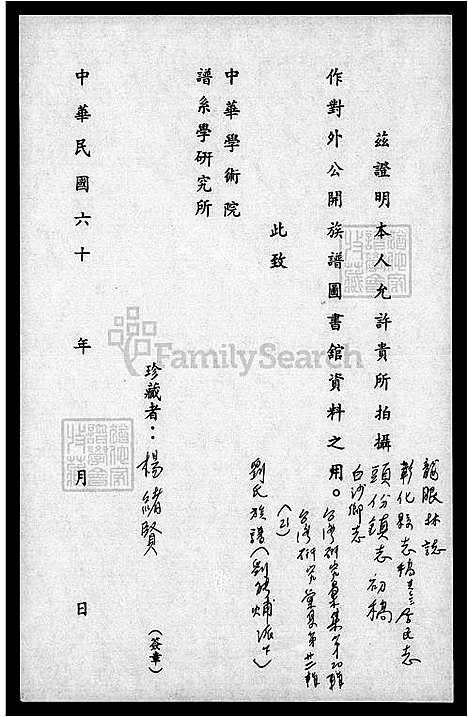 茲證明本人允許貴所拍攝
龍眼林誌
彰化縣志稿卷三居民志
頭份鎮志初稿
白沙鄉志
作對外公開族譜圖書舘資料之用。
台灣研究彙集第
台灣研究彙集第廿二輯
(21)
劉氏族譜(劉 派下)
此致
中華學術院
譜系學研究所
珍藏者：楊緒賢
(簽章)
中華民國六十 年 月 日
FamilySearch